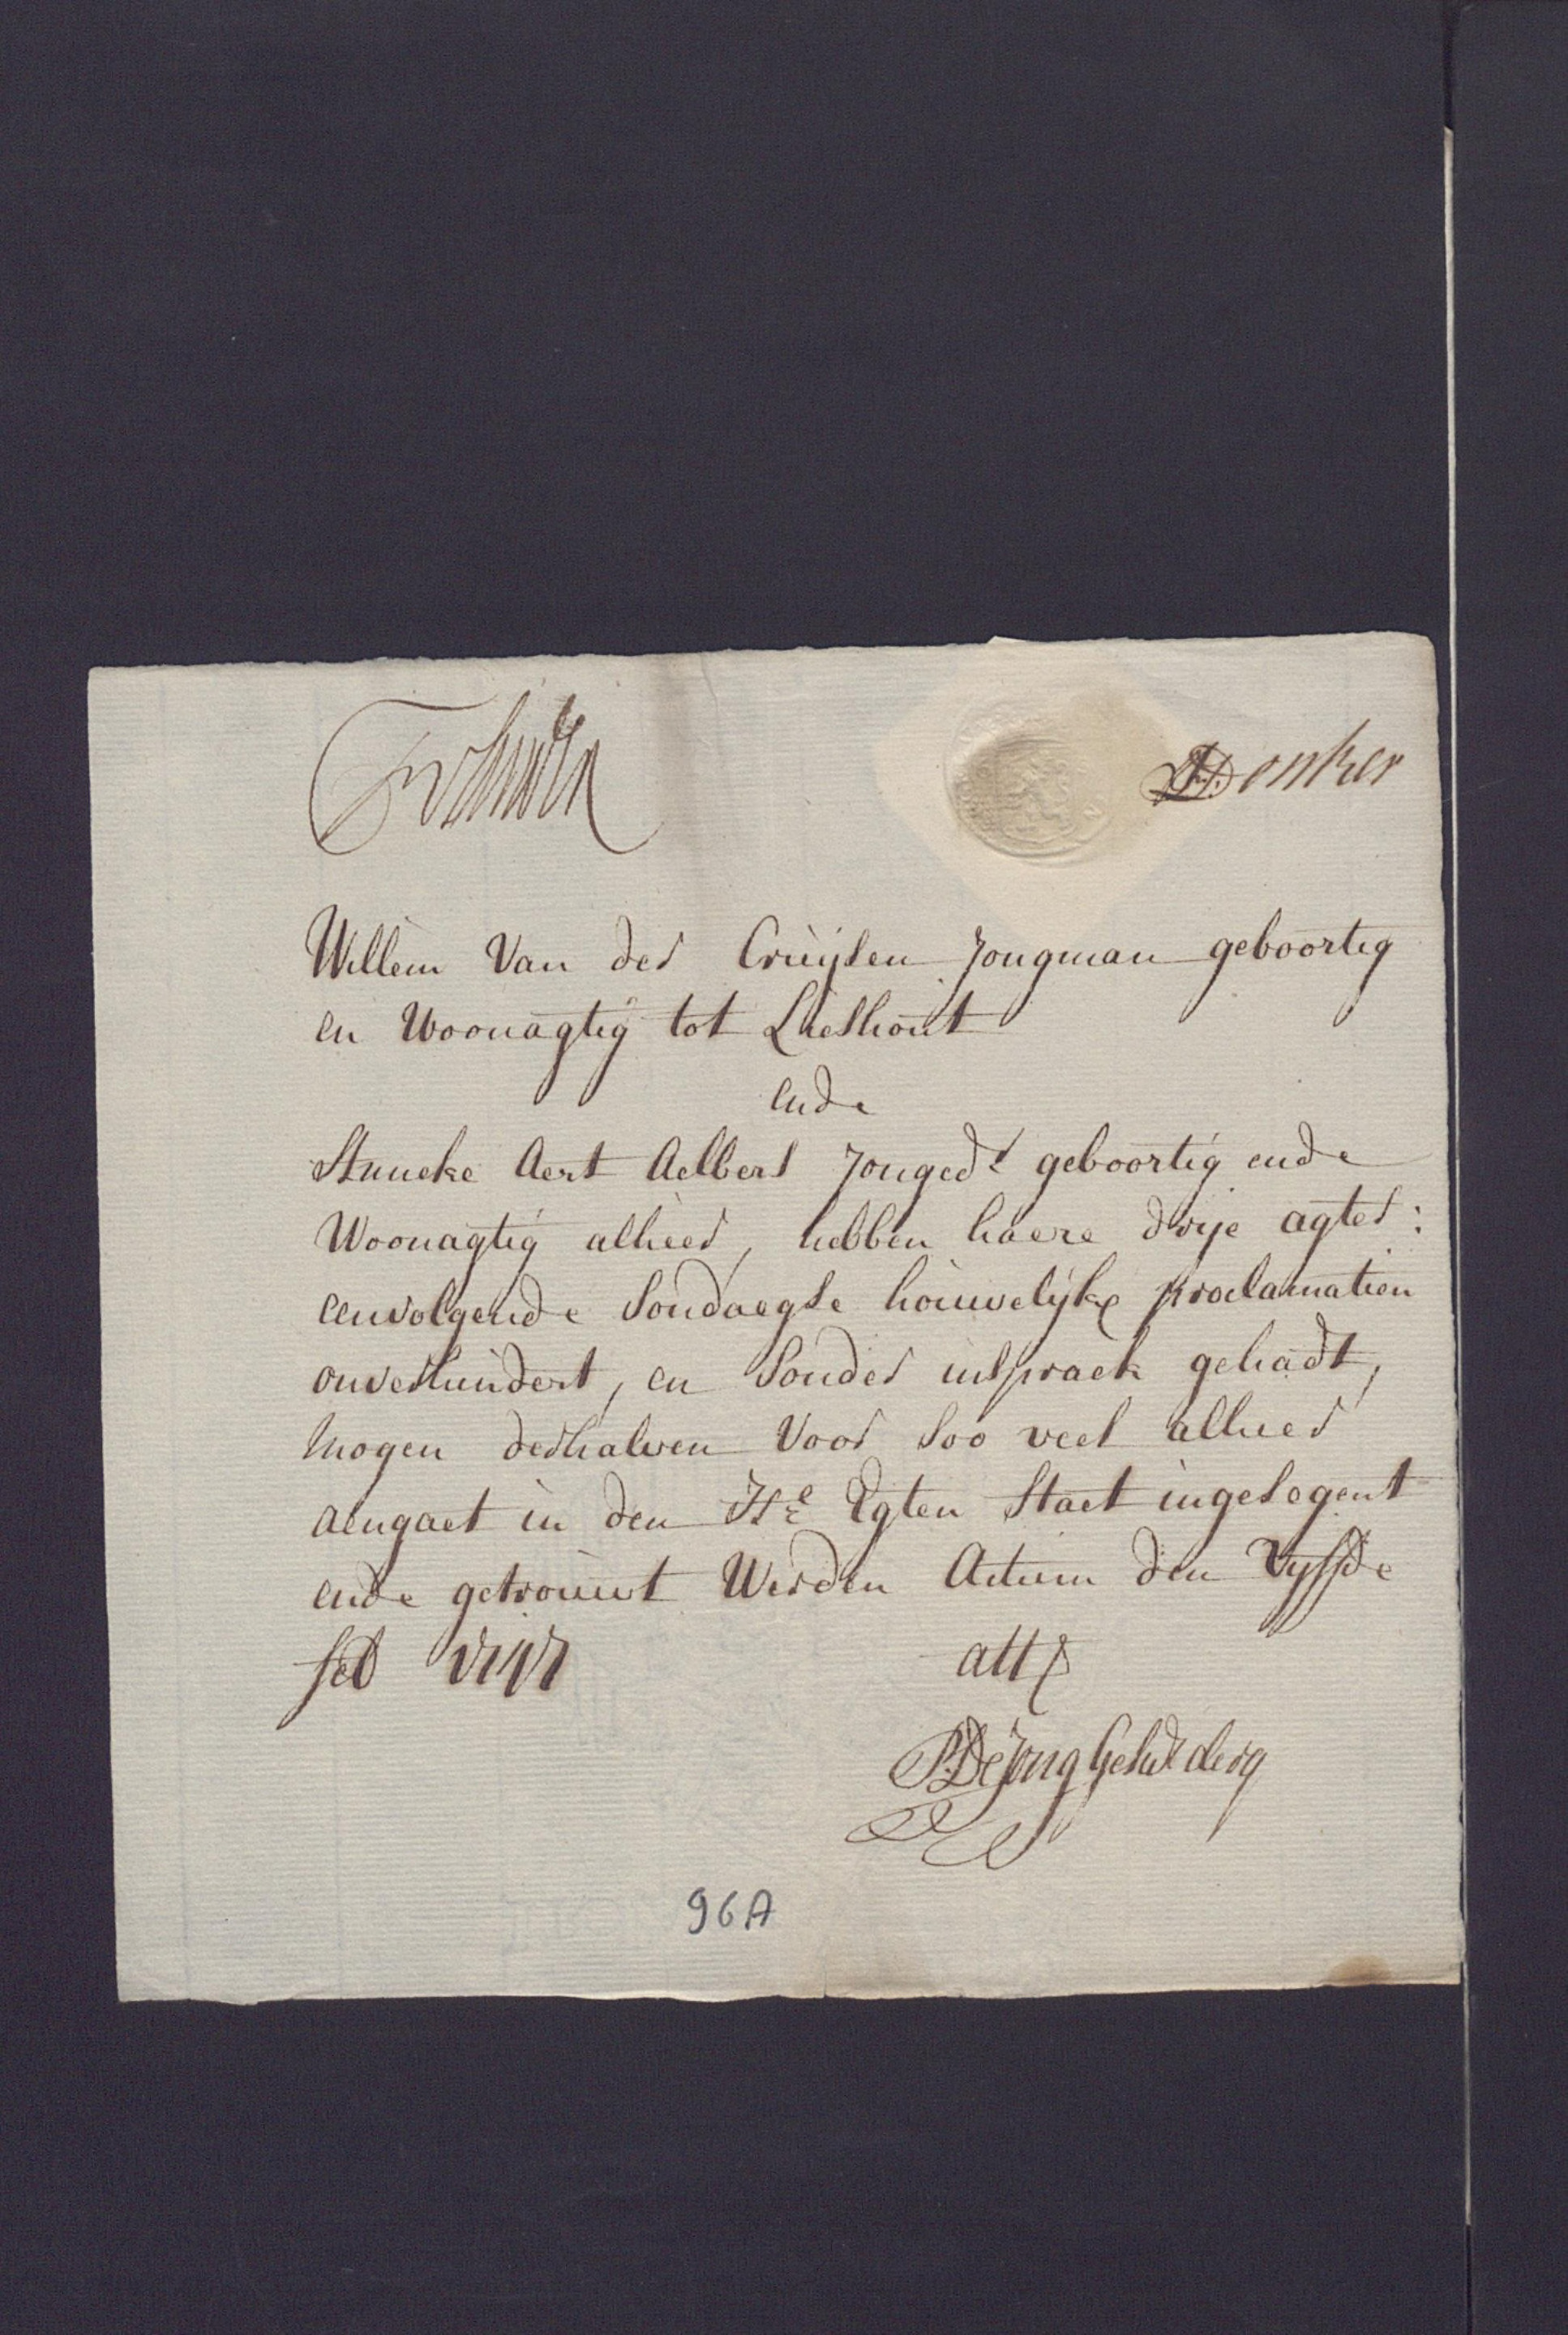 Donker
Willem Van der Cruijsen Jongman geboortig
en Woonagtig tot Lieshout
ende
Aert Aelbers Jongedr geboortig ende
Woonagtig alhier, hebben haere drije agter:
eenvolgende Sondaegse houwelijke proclamatien
onverhindert, en Sonder inspraek gehadt,
mogen derhalven Voor soo veel alhier
aengaet in den He Egten Staet ingesegent
ende getrouwt Werden Actum den Vyffde
feb
att
P: De Jong
96A